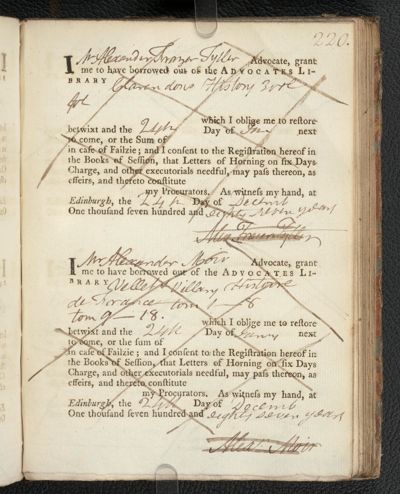 220.
I Mr Alexander Fraser Tytler Advocate, grant
me to have borrowed out of the ADVOCATES LI-
BRARY Clarendons History 3 vol
fol
which I oblige me to restore
betwixt and the 24th Day of Jany next
to come, or the Sum of
in case of Failzie; and I consent to the Registration hereof in
the Books of Session, that Letters of Horning on six Days
Charge, and other executorials needful, may pass thereon, as
effeirs, and thereto constitute
my Procurators. As witness my hand, at
Edinburgh, the 24th Day of Decemb
One thousand seven hundred and eighty seven years
Alex Fraser Tytler
I Mr Alexander Moir Advocate, grant
me to have borrowed out of the ADVOCATES LI-
BRARY Velley Villary Histoire
de France tom 1 - 8
tom 9 - 18.
which I oblige me to restore
betwixt and the 24th Day of Janry next
to come, or the sum of
in case of Failzie; and I consent to the Registration hereof in
the Books of Session, that Letters of Horning on six Days
Charge, and other executorials needful, may pass thereon, as
effeirs, and thereto constitute
my Procurators. As witness my hand, at
Edinburgh, the 24th Day of Decemb
One thousand seven hundred and eighty seven years
Alexr Moir